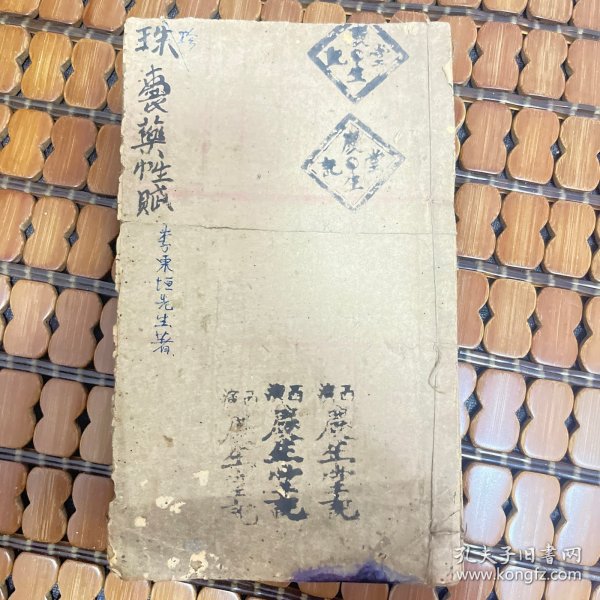 珠
珍
囊藥性賦
李東垣先生著
農生堂記
農生堂記
西滇
農生堂記
西滇
農生堂記
西滇
農生堂記
孔夫子旧书网
www.kongfz.com